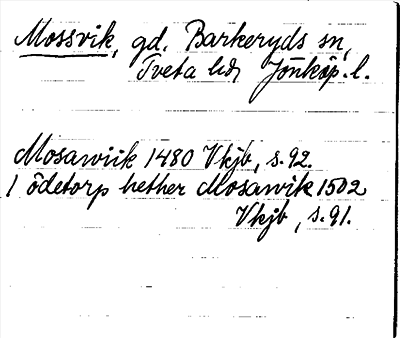 Mossvik, gd. Barkeryds sn,
Tveta hd, Jönköp. l.
Mosawiik 1480 Vkjb, s. 92.
1 ödetorp hether Mosawik 1502
Vkjb, s. 91.